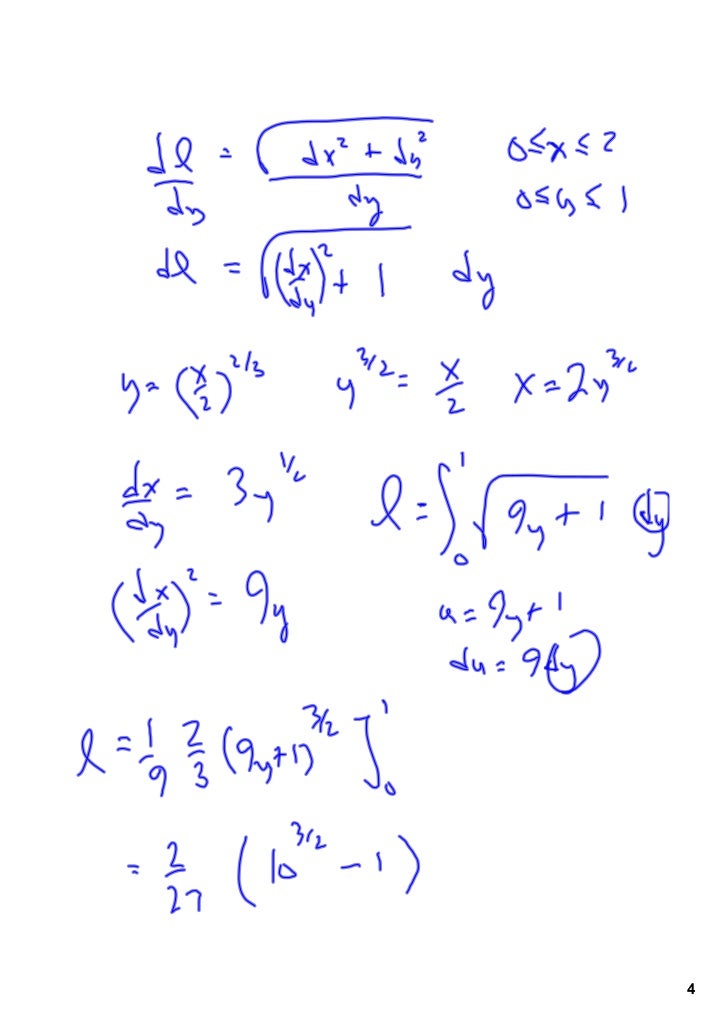 dl/dy = √(dx² + dy²)/dy    0 ≤ x ≤ 2
0 ≤ y ≤ 1
dl = √((dx/dy)² + 1) dy
y = (x/2)^(2/3)    y^(3/2) = x/2    x = 2y^(3/2)
dx/dy = 3y^(1/2)    l = ∫₀¹ √(9y + 1) dy
(dx/dy)² = 9y    u = 9y + 1
du = 9dy
l = 1/9 2/3 (9y+1)^(3/2) ]₀¹
= 2/27 (10^(3/2) - 1)
4